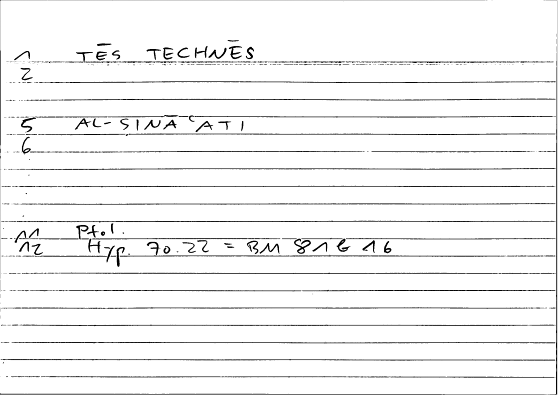 1 TĒS TECHNĒS
2
5 AL-SINĀʿATI
6
11 Ptol.
12 Hyp. 70.22 = BM 81 b 16